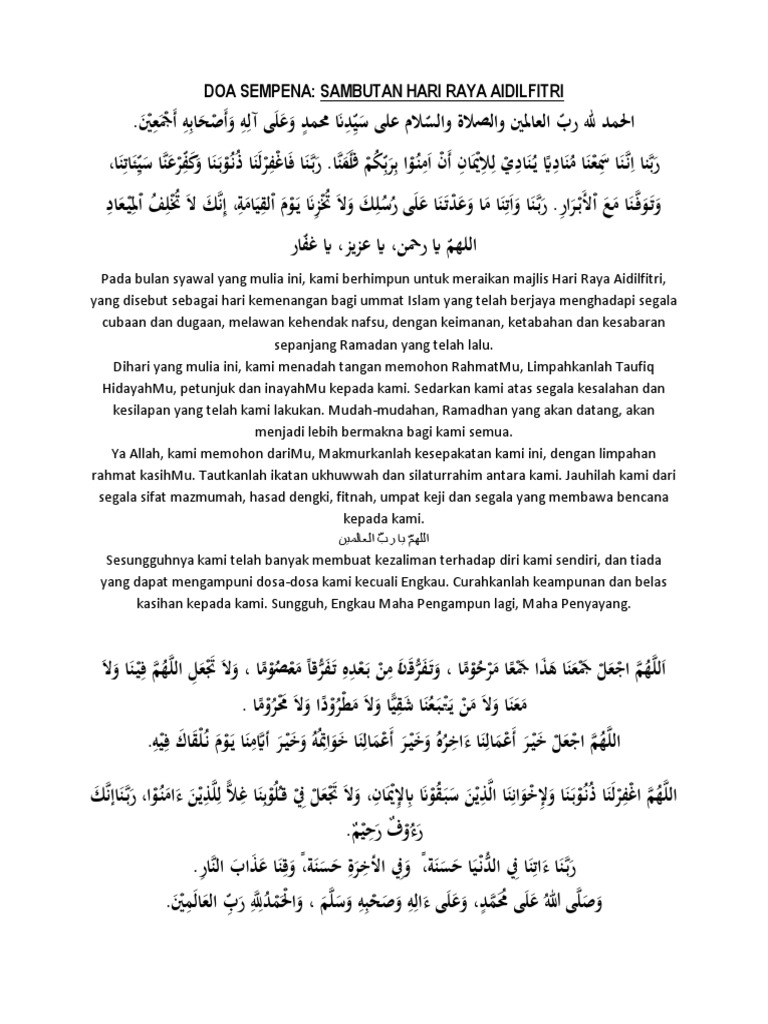 DOA SEMPENA: SAMBUTAN HARI RAYA AIDILFITRI
الحمد لله ربّ العالمين والصلاة والسّلام على سَيِّدِنَا محمدٍ وَعَلَى آلِهِ وَأَصْحَابِهِ أَجْمَعِيْنَ.
رَبَّنَا اِنَّنَا سَمِعْنَا مُنَادِيًا يُنَادِيْ لِلِايْمَانِ أَنْ اَمِنُوْا بِرَبِّكُمْ فَلَفَنَّا. رَبَّنَا فَاغْفِرْلَنَا ذُنُوْبَنَا وَكَفِّرْعَنَّا سَيِّئَاتِنَا،
وَتَوَفَّنَا مَعَ اْلأَبْرَارِ. رَبَّنَا وَاَتِنَا مَا وَعَدْتَنَا عَلَى رُسُلِكَ وَلاَ تُخْزِنَا يَوْمَ اْلقِيَامَةِ، إِنَّكَ لاَ تُخْلِفُ اْلمِيْعَادِ
اللهمّ يا رحمن، يا عزيز، يا غفّار
Pada bulan syawal yang mulia ini, kami berhimpun untuk meraikan majlis Hari Raya Aidilfitri,
yang disebut sebagai hari kemenangan bagi ummat Islam yang telah berjaya menghadapi segala
cubaan dan dugaan, melawan kehendak nafsu, dengan keimanan, ketabahan dan kesabaran
sepanjang Ramadan yang telah lalu.
Dihari yang mulia ini, kami menadah tangan memohon RahmatMu, Limpahkanlah Taufiq
HidayahMu, petunjuk dan inayahMu kepada kami. Sedarkan kami atas segala kesalahan dan
kesilapan yang telah kami lakukan. Mudah-mudahan, Ramadhan yang akan datang, akan
menjadi lebih bermakna bagi kami semua.
Ya Allah, kami memohon dariMu, Makmurkanlah kesepakatan kami ini, dengan limpahan
rahmat kasihMu. Tautkanlah ikatan ukhuwwah dan silaturrahim antara kami. Jauhilah kami dari
segala sifat mazmumah, hasad dengki, fitnah, umpat keji dan segala yang membawa bencana
kepada kami.
اللهمّ يا ربّ العالمين
Sesungguhnya kami telah banyak membuat kezaliman terhadap diri kami sendiri, dan tiada
yang dapat mengampuni dosa-dosa kami kecuali Engkau. Curahkanlah keampunan dan belas
kasihan kepada kami. Sungguh, Engkau Maha Pengampun lagi, Maha Penyayang.
اَللَّهُمَّ اجْعَلْ جَمْعَنَا هَذَا جَمْعًا مَرْحُوْمًا ، وَتَفَرُّقَنَا مِنْ بَعْدِهِ تَفَرُّقاً مَعْصُوْمًا ، وَلاَ تَجْعَلِ اللَّهُمَّ فِيْنَا وَلاَ
مَعَنَا وَلاَ مَنْ يَتْبَعُنَا شَقِيًّا وَلاَ مَطْرُوْدًا وَلاَ مَحْرُوْمًا .
اللَّهُمَّ اجْعَلْ خَيْرَ أَعْمَالِنَا ءَاخِرُهُ وَخَيْرَ أَعْمَالِنَا خَوَاتِمُهُ وَخَيْرَ أَيَّامِنَا يَوْمَ نُلْقَاكَ فِيْهِ.
اللَّهُمَّ اغْفِرْلَنَا ذُنُوْبَنَا وَلِإِخْوَانِنَا الَّذِيْنَ سَبَقُوْنَا بِالِإيْمَانِ، وَلاَ تَجْعَلْ فِيْ قُلُوْبِنَا غِلاًّ لِلَّذِيْنَ ءَامَنُوْا، رَبَّنَاإِنَّكَ
رَءُوْفٌ رَحِيْمٌ.
رَبَّنَا ءَاتِنَا فِي الدُّنْيَا حَسَنَة،ً وَفِي الأخِرَةِ حَسَنَة،ً وَقِنَا عَذَابَ النَّارِ.
وَصَلَّى اللهُ عَلَى مُحَمَّدٍ، وَعَلَى ءَالِهِ وَصَحْبِهِ وَسَلَّمَ ، وَالْحَمْدُلِلَّهِ رَبِّ العَالَمِيْنَ.